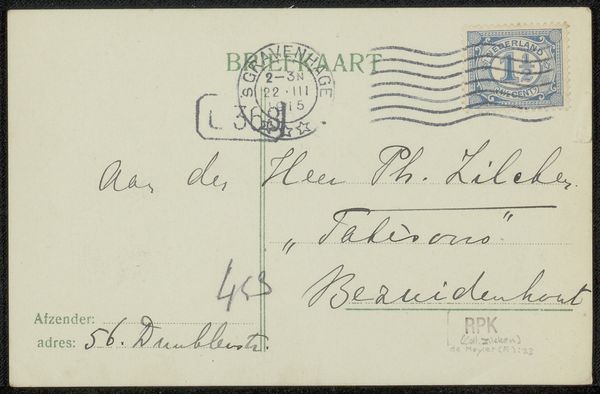 BRIEFKAART
'SGRAVENHAGE
2-3N
22·III
1915
NEDERLAND
1½
CENT
L 368
Aan den Heer Ph. Zilcken
"
Bezuidenhout
453
Afzender:
adres: 56.
RPK
(coll. Zilcken)
de Meyier